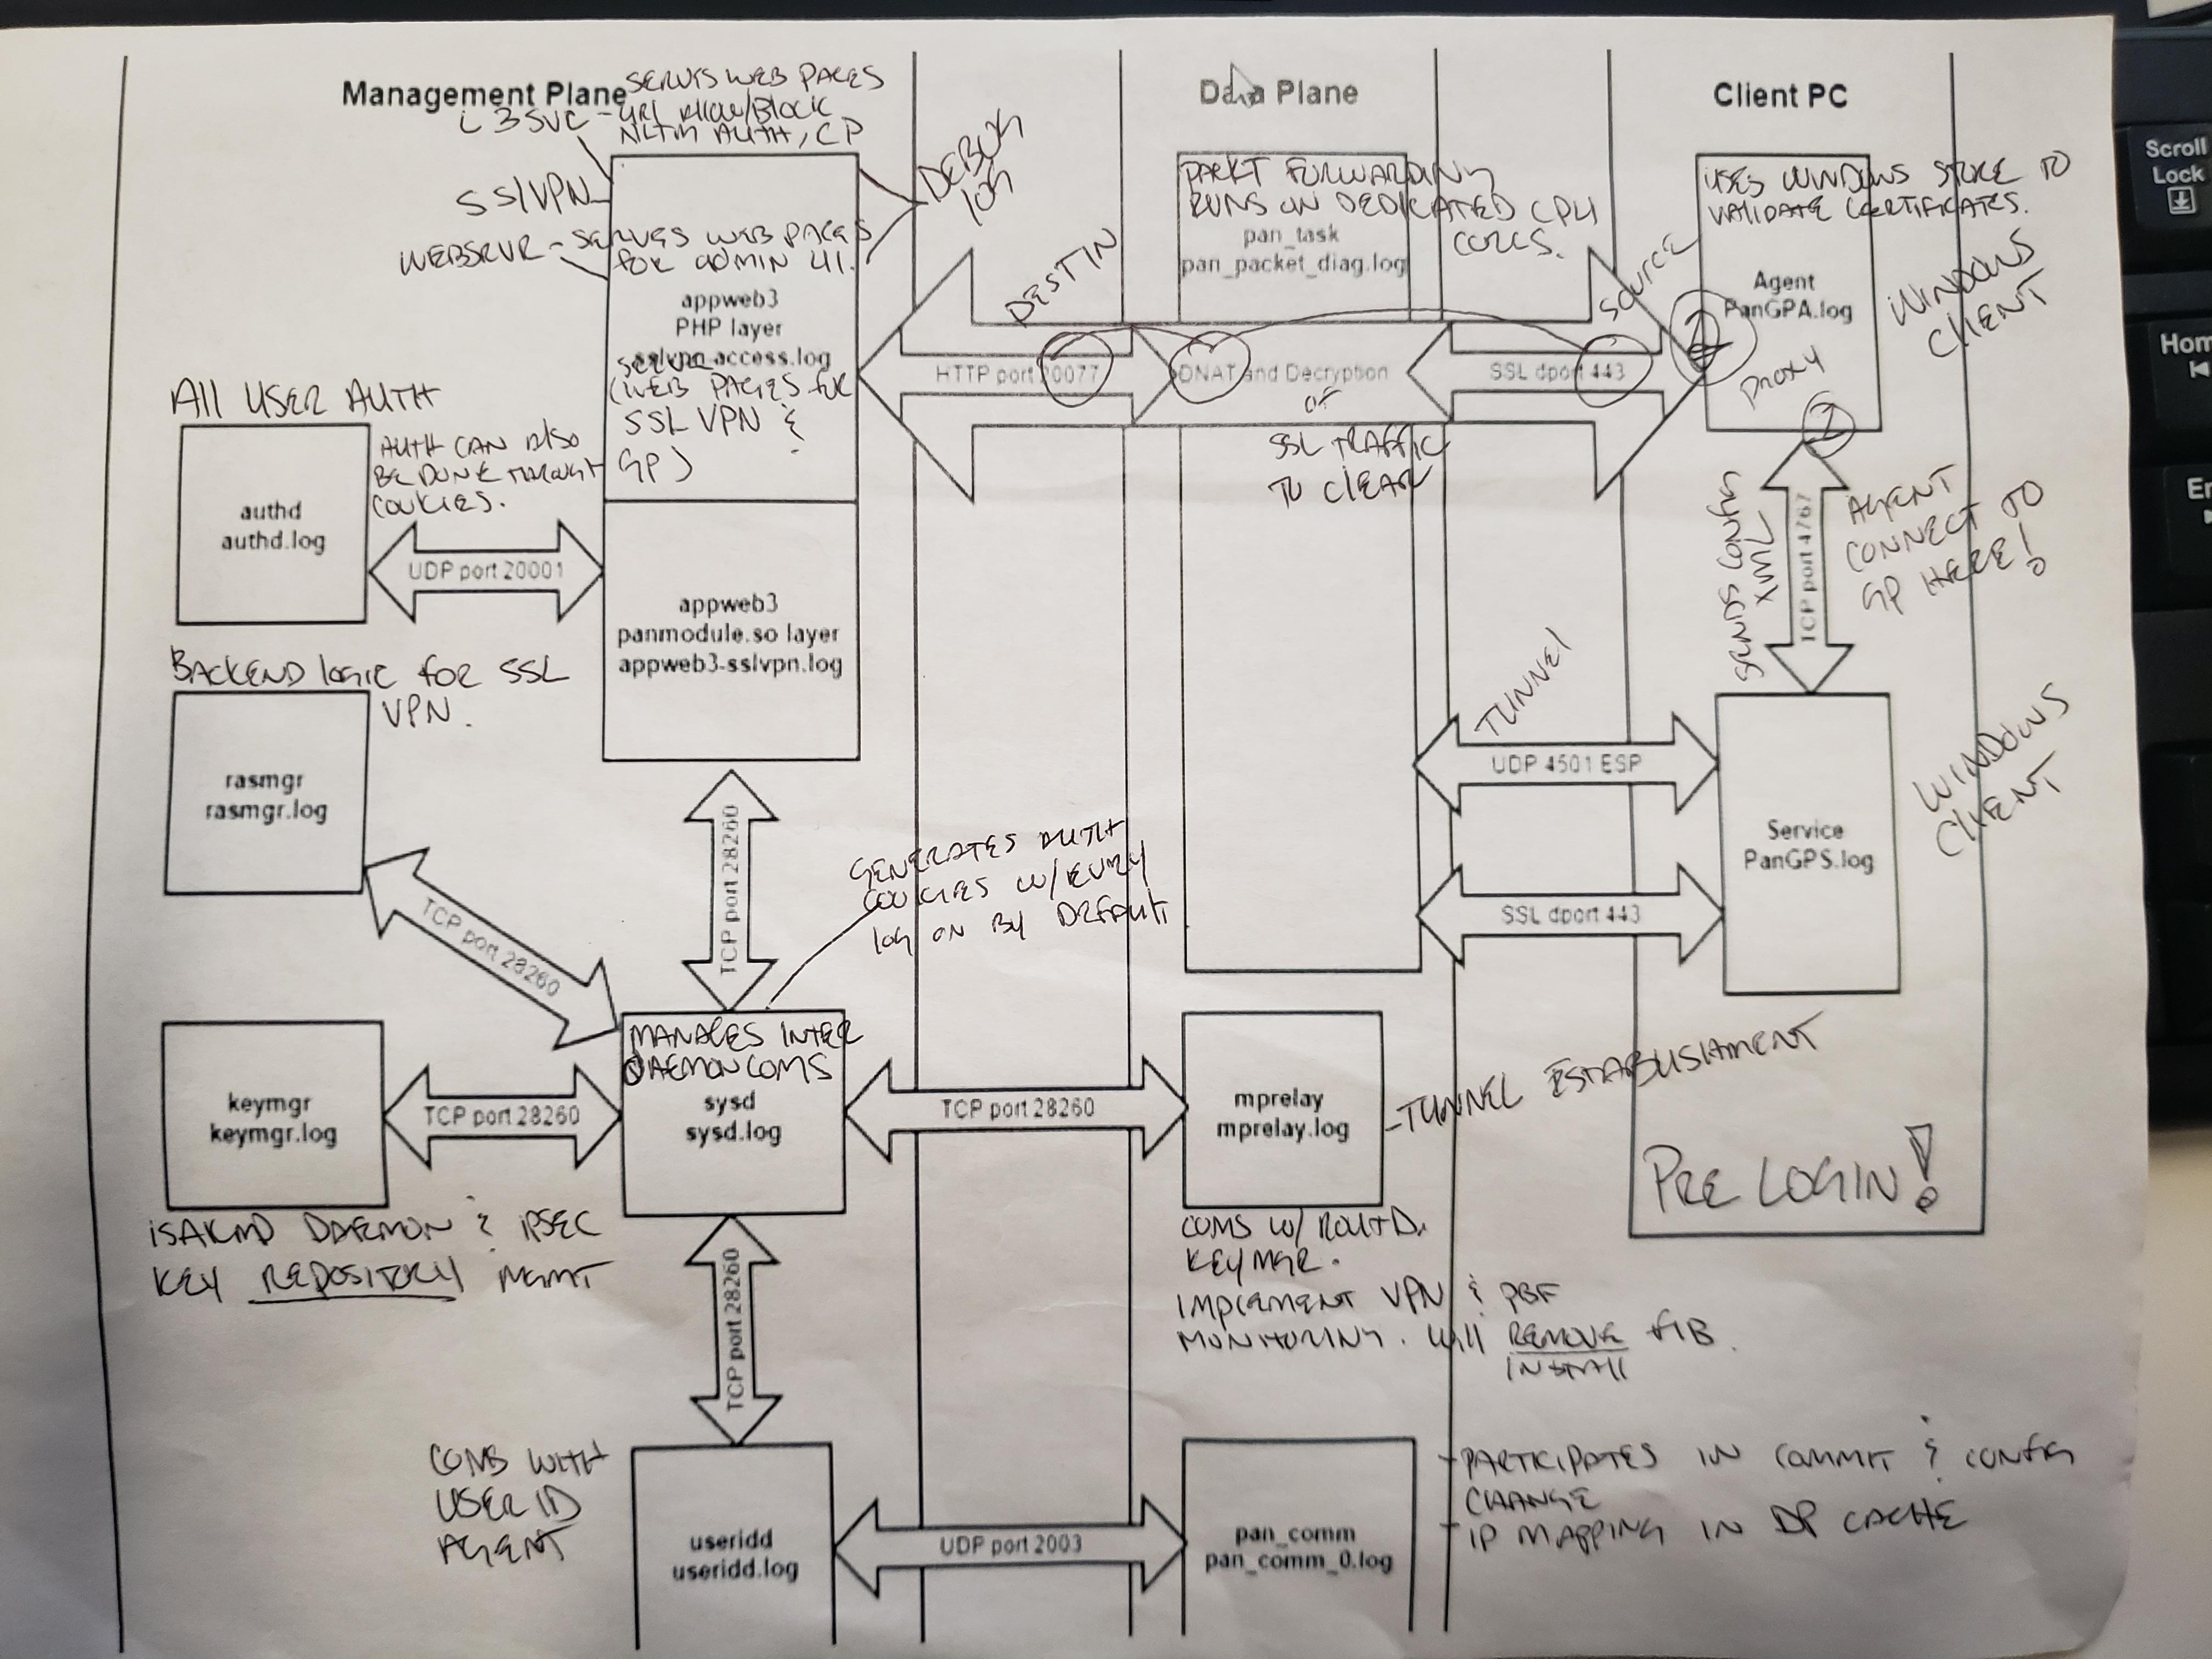 Management Plane
SERVES WEB PAGES
L3SVC - URL Allow/Block
NLTM AUTH, CP
SSLVPN
WEBSRVR - SERVES WEB PAGES
for ADMIN UI.
DEBUG
log
appweb3
PHP layer
sslvpn-access.log
(WEB PAGES for
SSL VPN &
GP)
appweb3
panmodule.so layer
appweb3-sslvpn.log
All USER AUTH
AUTH CAN Also
BE DONE THROUGH
COOKIES.
authd
authd.log
UDP port 20001
BACKEND logic for SSL
VPN.
rasmgr
rasmgr.log
TCP port 28260
TCP port 28260
GENERATES AUTH
COOKIES W/EVERY
log ON BY DEFAULT
keymgr
keymgr.log
TCP port 28260
MANAGES INTER
DAEMON COMS
sysd
sysd.log
TCP port 28260
iSAKMD DAEMON & iPSEC
KEY REPOSITORY MGMT
TCP port 28260
COMS WITH
USER ID
AGENT
useridd
useridd.log
UDP port 2003
Data Plane
PACKT FORWARDING
RUNS ON DEDICATED CPU
CORES.
pan_task
pan_packet_diag.log
DESTIN
SOURCE
HTTP port 20077
DNAT and Decryption
OF
SSL TRAFFIC
TO CLEAR
SSL dport 443
TUNNEL
UDP 4501 ESP
SSL dport 443
mprelay
mprelay.log
-TUNNEL ESTABLISHMENT
COMS W/ ROUTD.
KEYMGR.
IMPLEMENT VPN & PBF
MONITORING. Will REMOVE FIB.
INSTAll
pan_comm
pan_comm_0.log
-PARTICIPATES IN COMMIT & CONFIG
CHANGE
-IP MAPPING IN DP CACHE
Client PC
USES WINDOWS STORE TO
VALIDATE CERTIFICATES.
Agent
PanGPA.log
PROXY
WINDOWS
CLIENT
SENDS CONFIG
XML
TCP port 4767
AGENT
CONNECT TO
GP HERE!
Service
PanGPS.log
WINDOWS
CLIENT
PRE LOGIN!
Scroll
Lock
Hom
En